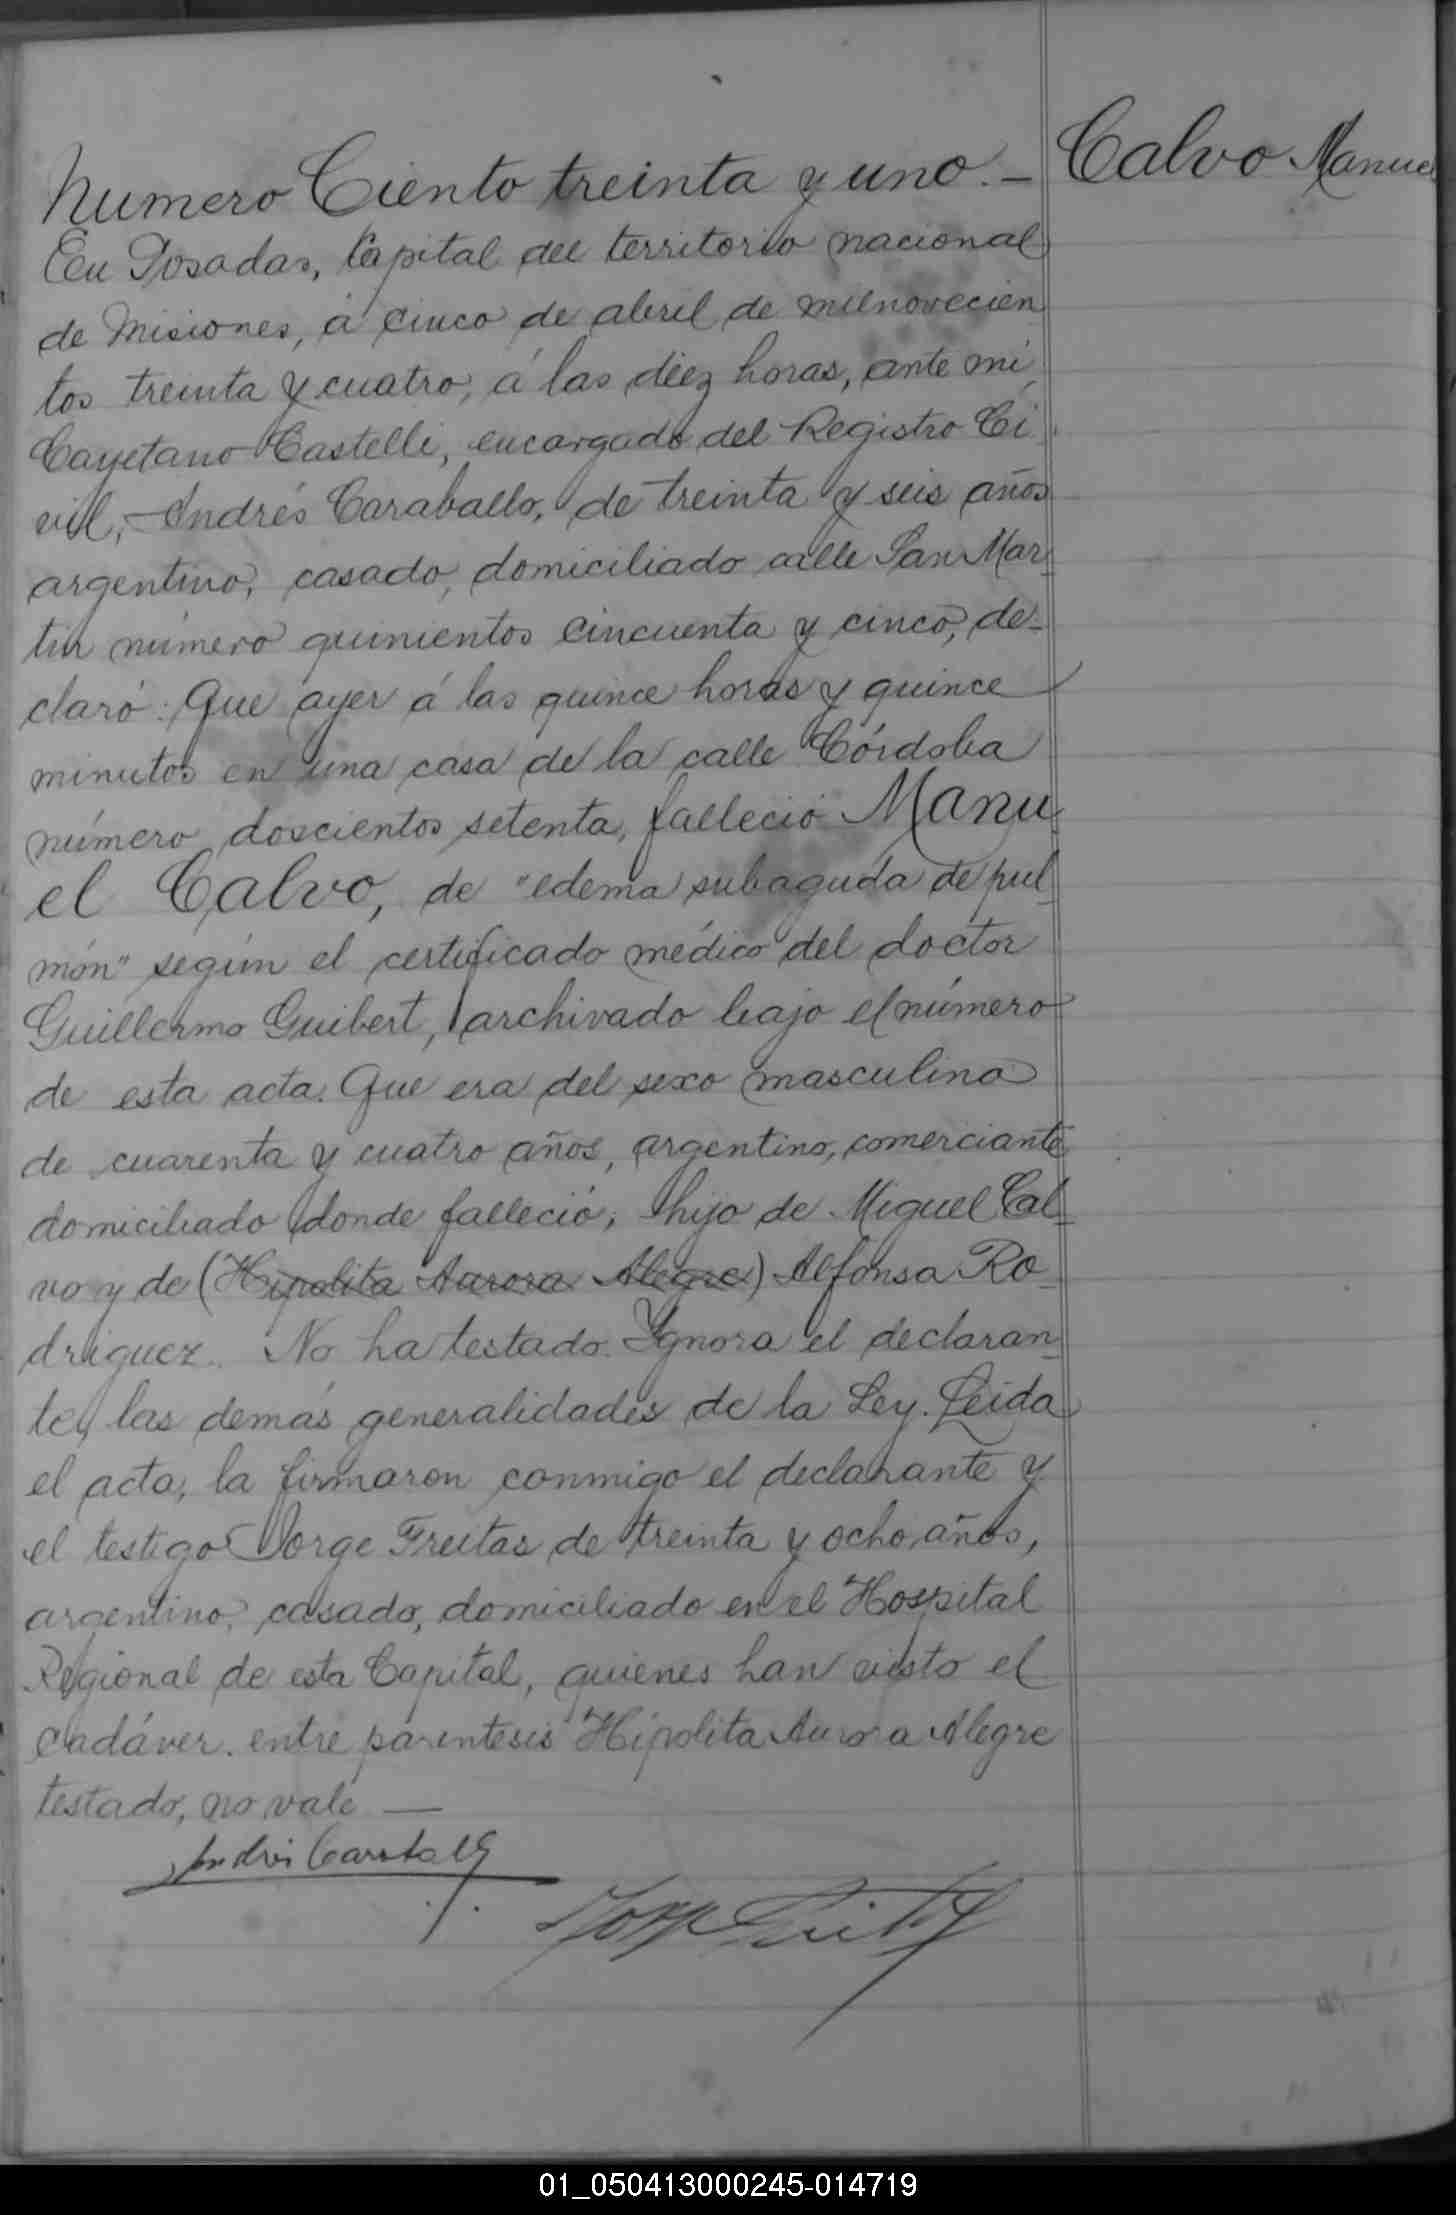 Numero Ciento treinta y uno. —
Calvo Manuel
En Posadas, Capital del territorio nacional
de Misiones, á cinco de abril de milnovecien
tos treinta y cuatro, á las diez horas, ante mi
Cayetano Castelli, encargado del Registro Ci
vil, Andrés Caraballo, de treinta y seis años
argentino, casado, domiciliado calle San Mar-
tin número quinientos cincuenta y cinco, de-
claró: Que ayer á las quince horas y quince
minutos en una casa de la calle Córdoba
número doscientos setenta, falleció Manu
el Calvo, de "edema subaguda de pul-
món" según el certificado médico del doctor
Guillermo Guibert, archivado bajo el número
de esta acta. Que era del sexo masculino
de cuarenta y cuatro años, argentino, comerciante
domiciliado donde falleció, hijo de Miguel Cal-
vo y de (Hipolita Aurora Alegre) Alfonsa Ro-
driguez. No ha testado. Ygnora el declaran-
te, las demás generalidades de la Ley. Leida
el acta, la firmaron conmigo el declarante y
el testigo Jorge Freitas de treinta y ocho años,
argentino, casado, domiciliado en el Hospital
Regional de esta Capital, quienes han visto el
cadáver. entre parentesis Hipolita Aurora Alegre
testado, no vale —
Andrés Caraballo
01_050413000245-014719